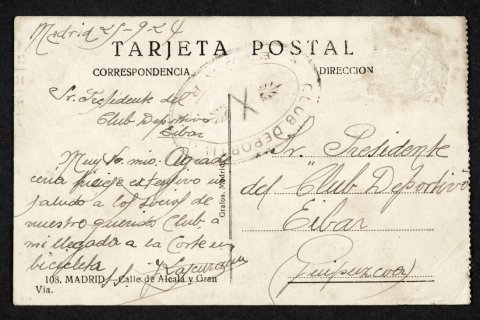 Madrid 25-9-24
TARJETA POSTAL
CORRESPONDENCIA
DIRECCION
CLUB DEPORTIVO
Sr. Presidente del
Club Deportivo
Eibar
Muy Sr. mio: Agrade
ceria hiciese extensivo un
saludo a los Sres. de
nuestro querido Club, a
mi llegada a la Corte en
bicicleta
Grafos. Madrid
108. MADRID.—Calle de Alcalá y Gran
Vía.
Sr. Presidente
del "Club Deportivo"
Eibar
(Guipuzcoa)